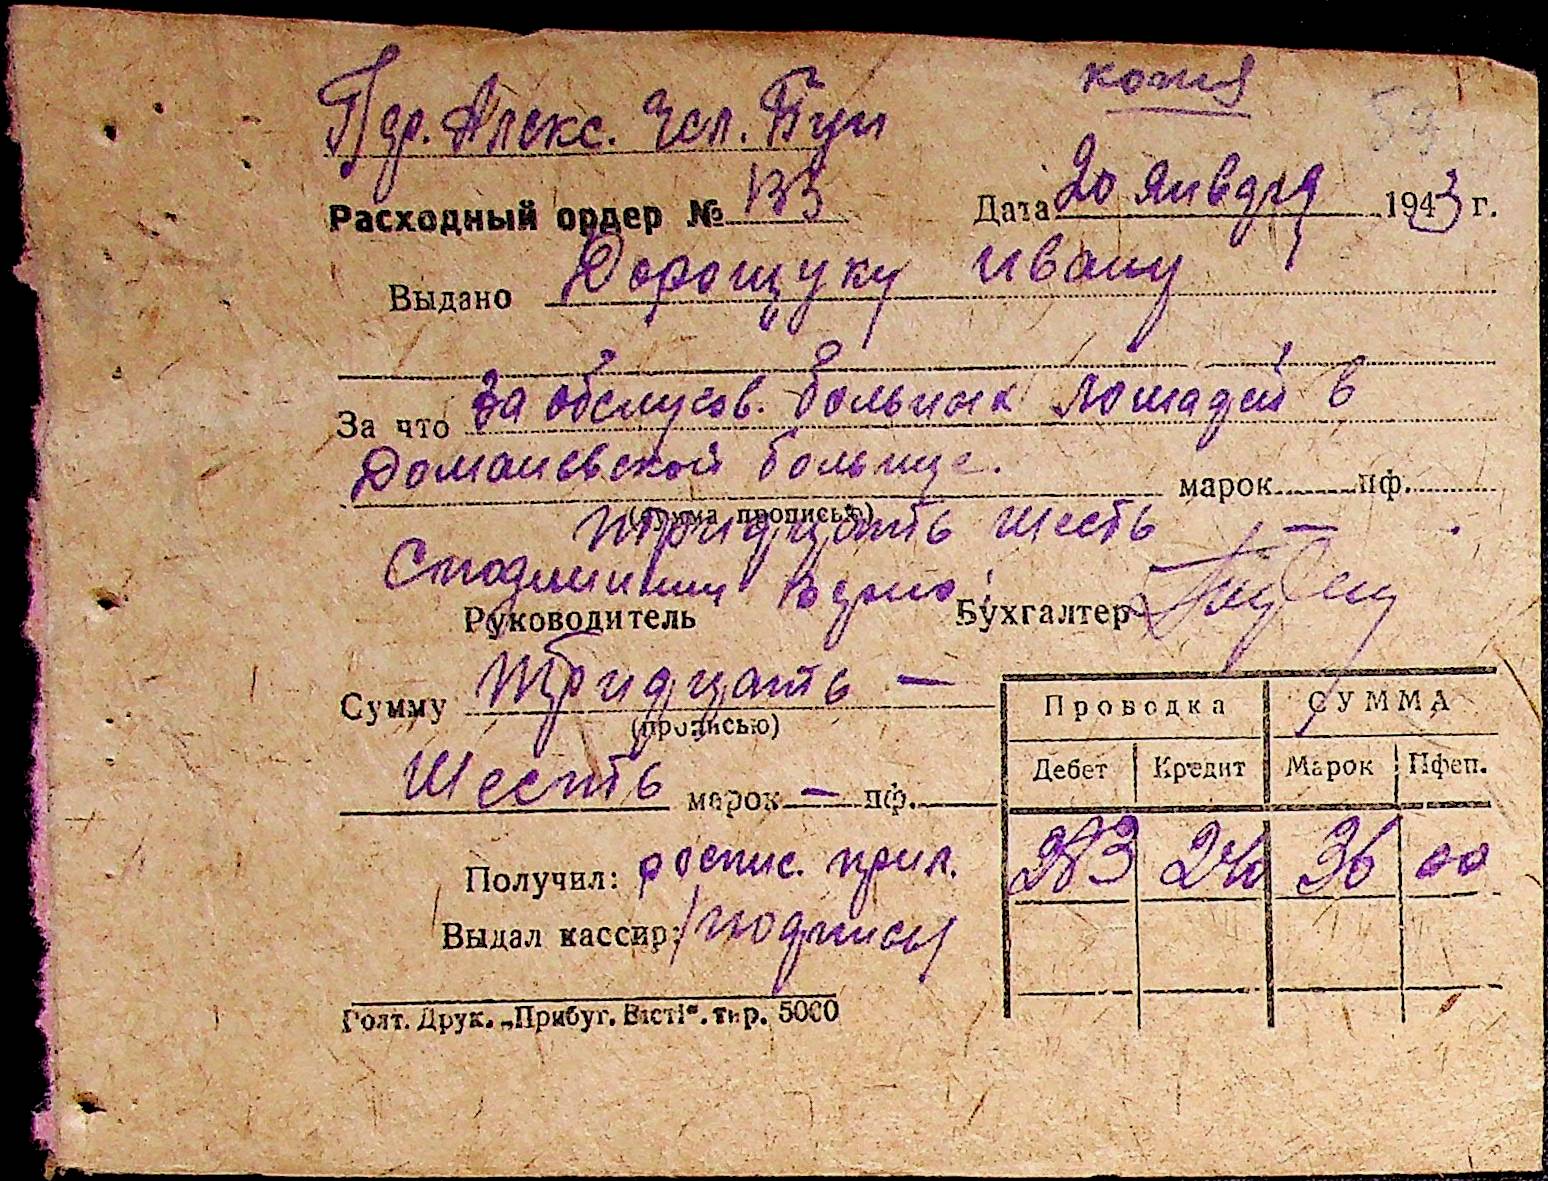 копия
Пдр. Алекс. Чсл. Бум
53
Расходный ордер № 133 Дата 20 января 1943 г.
Выдано Дорощуку Ивану
За что За обслусов. больных лошадей в
Доманевской больнице.
марок пф.
(сумма прописью)
тридцать шесть —
С подлинным верно:
Руководитель Бухгалтер
Сумму Тридцать —
(прописью)
Шесть марок — пф.
Проводка СУММА
Дебет Кредит Марок Пфен.
283 240 36 00
Получил: роспис. прил.
Выдал кассир: /подпись/
Голт. Друк. „Прибуг. Вісті“. тир. 5000